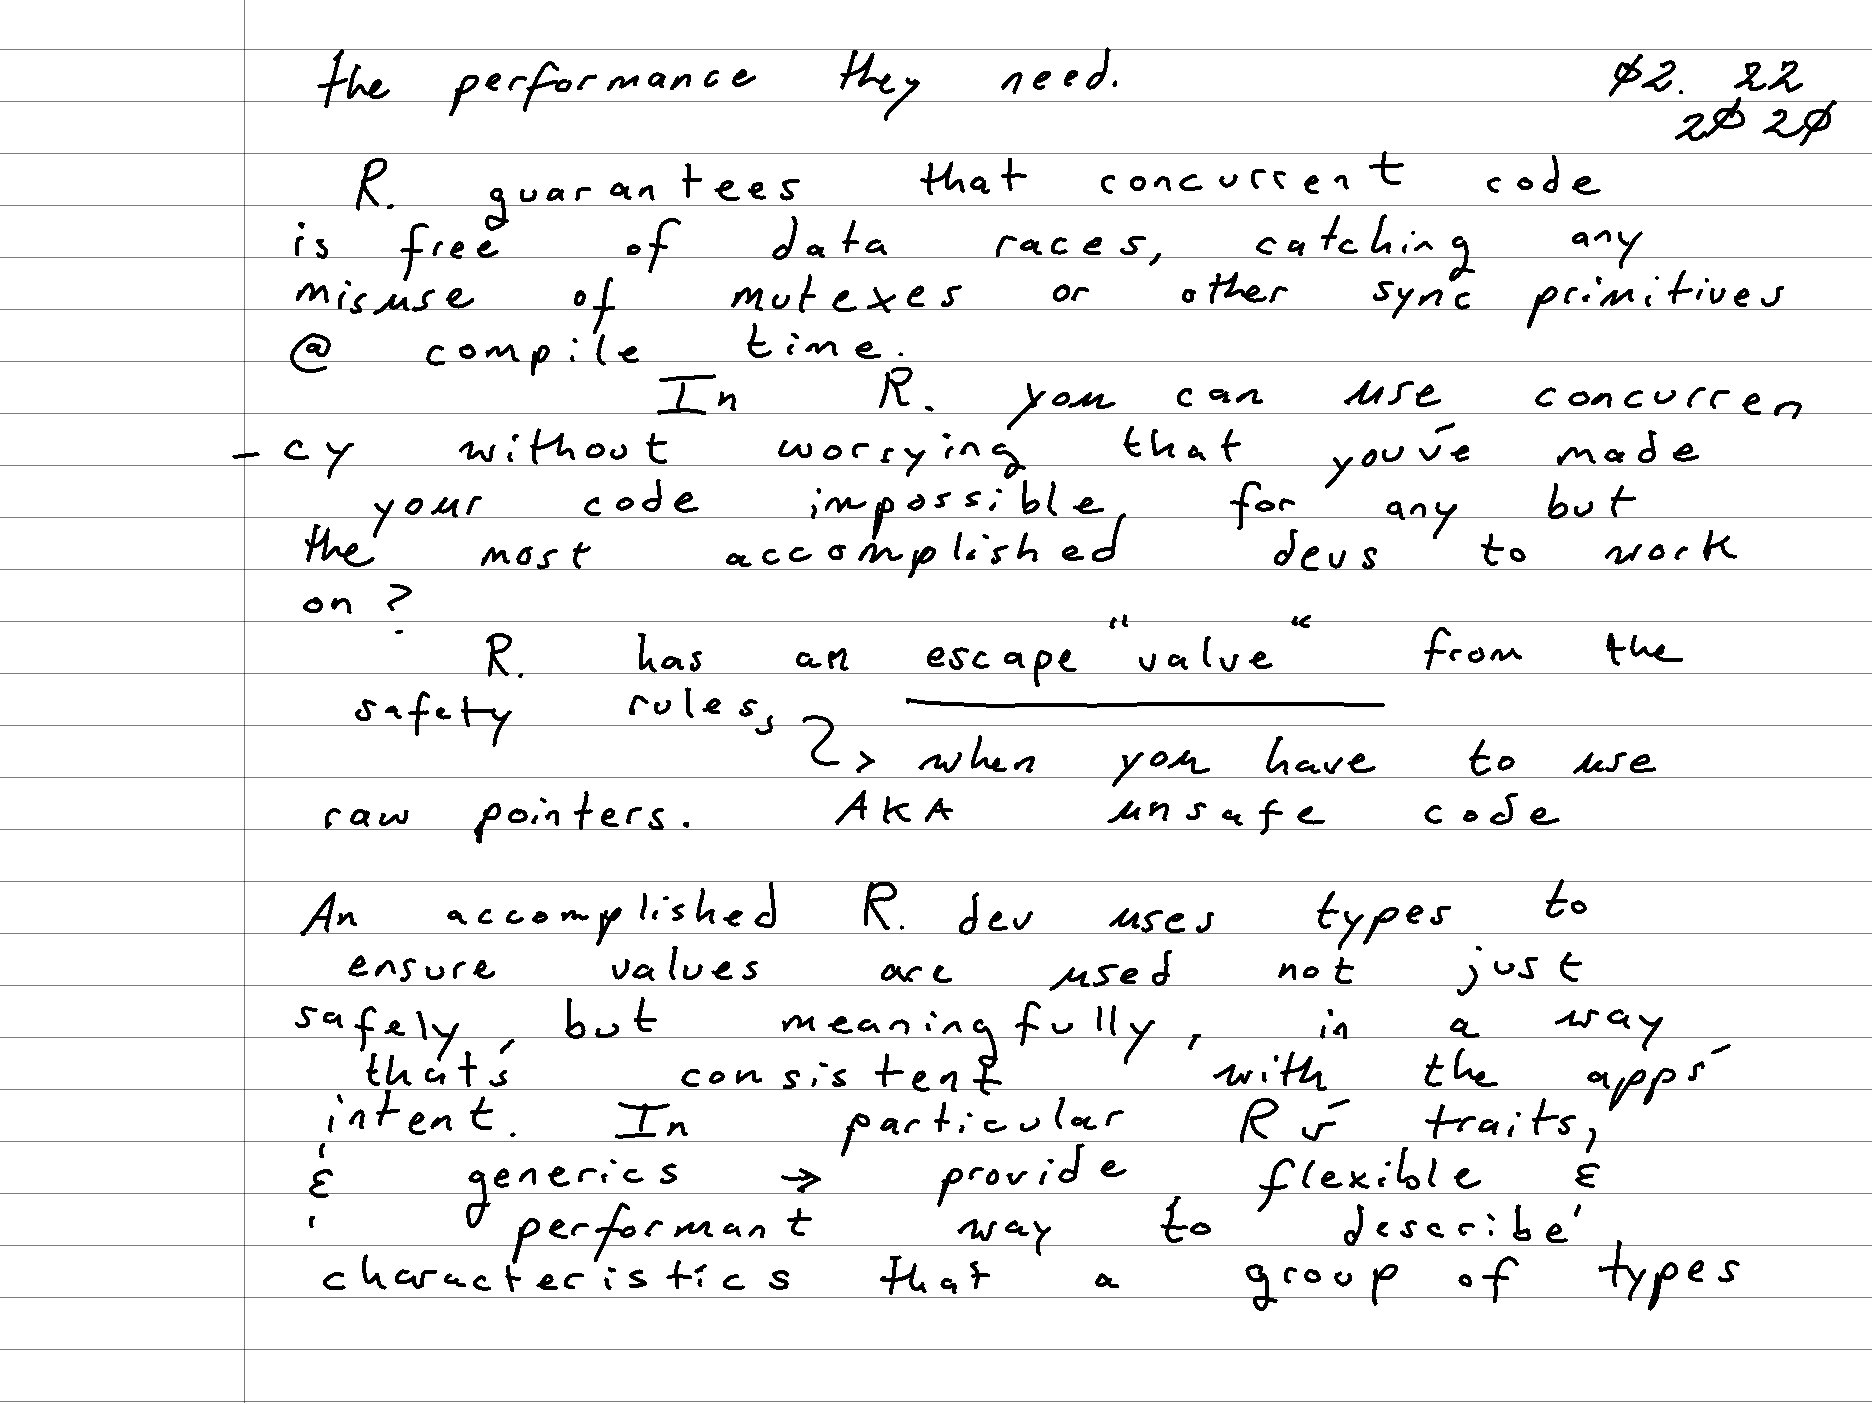 the performance they need. 02. 22
2020
R. guarantees that concurrent code
is free of data races, catching any
misuse of mutexes or other sync primitives
@ compile time.
In R. you can use concurren
- cy without worrying that you've made
your code impossible for any but
the most accomplished devs to work
on?
R. has an escape "value" from the
safety rules,
> when you have to use
raw pointers. AKA unsafe code
An accomplished R. dev uses types to
ensure values are used not just
safely, but meaningfully, in a way
that's consistent with the app's
intent. In particular R's traits,
& generics → provide flexible &
performant way to describe
characteristics that a group of types